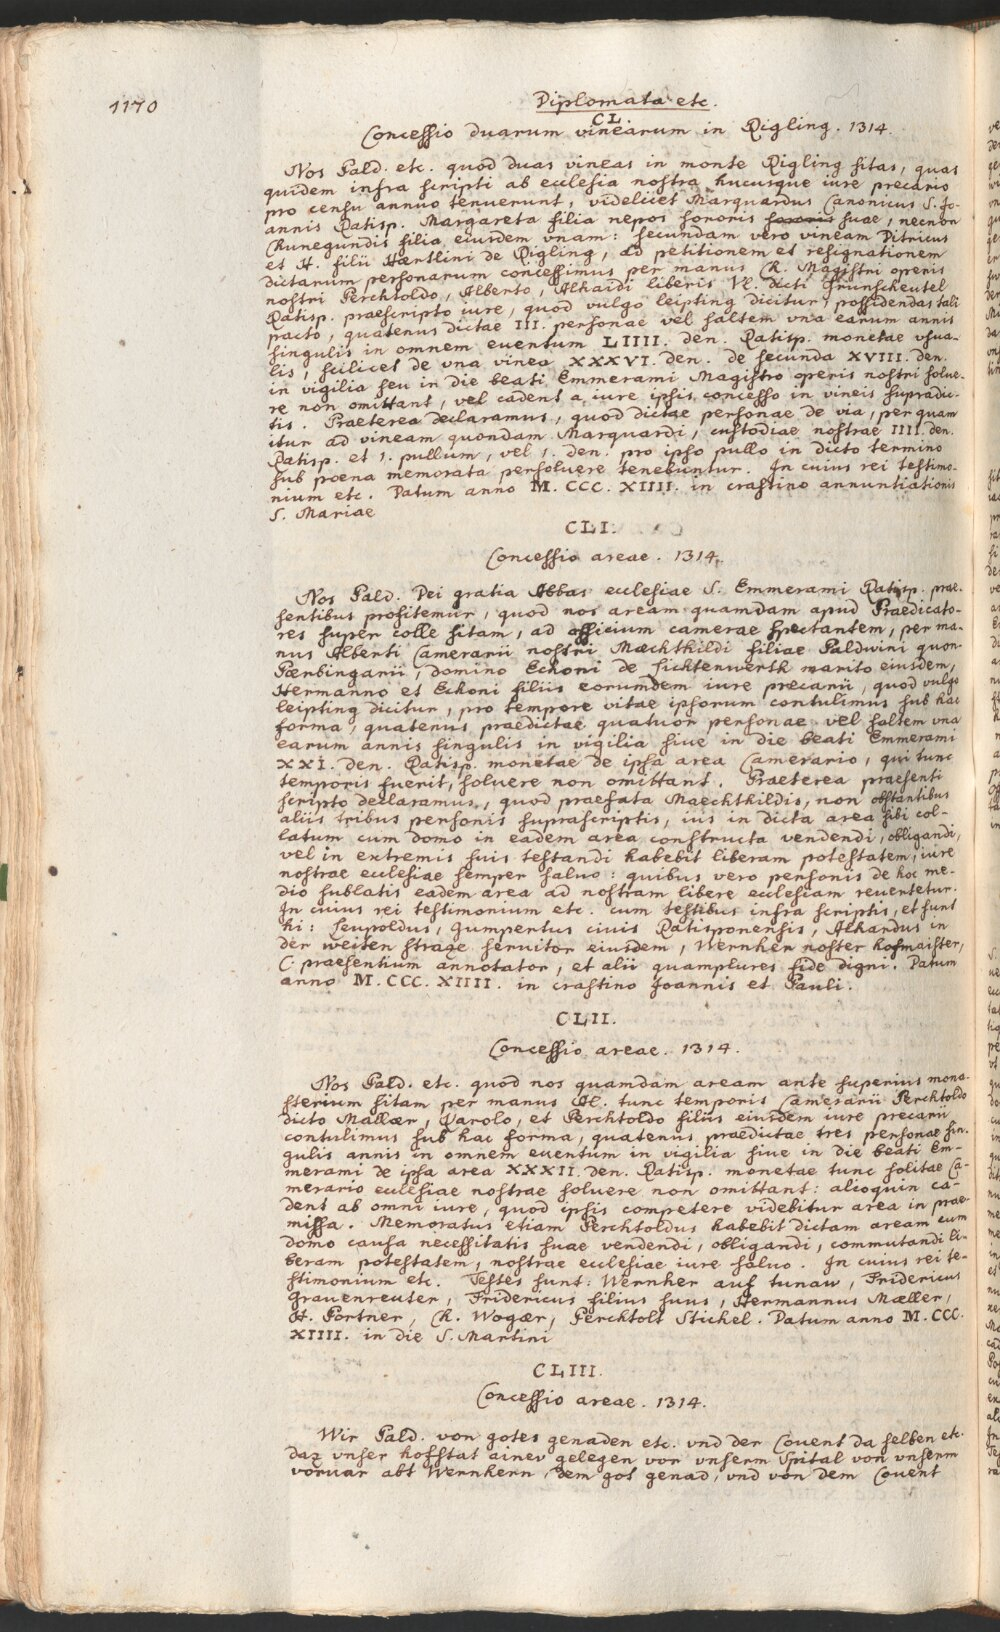 1170
Diplomata etc.
CL.
Concessio duarum vinearum in Rigling. 1314.
Nos Bald. etc. quod duas vineas in monte Rigling sitas, quas
quidem infra scripti ab ecclesia nostra hucusque iure precario
pro censu annuo tenuerunt, videlicet Marquardus Canonicus S. Jo-
annis Ratisp. Margareta filia nepos sororis sororis suae, necnon
Chunegundis filia eiusdem vnam: secundam vero vineam Ditricus
et H. filii Hærtlini de Rigling, ad petitionem et resignationem
dictarum personarum concessimus per manus Ch. Magistri operis
nostri Perchtoldo, Alberto, Alhaidi liberis Vl. dicti Grunscheutel
Ratisp. praescripto iure, quod vulgo leipting dicitur, possidendas tali
pacto, quatenus dictae III. personae vel saltem vna earum annis
singulis in omnem euentum LIIII. den. Ratisp. monetae vsua-
lis, scilicet de vna vinea XXXVI. den. de secunda XVIII. den.
in vigilia seu in die beati Emmerami Magistro operis nostri solue-
re non omittant, vel cadent a iure ipsis concesso in vineis supradic-
tis. Praeterea declaramus, quod dictae personae de via, per quam
itur ad vineam quondam Marquardi, custodiae nostrae IIII. den.
Ratisp. et 1. pullum, vel 1. den. pro ipso pullo in dicto termino
sub poena memorata persoluere tenebuntur. In cuius rei testimo-
nium etc. Datum anno M. CCC. XIIII. in crastino annuntiationis
S. Mariae
CLI.
Concessio areae. 1314.
Nos Bald. Dei gratia Abbas ecclesiae S. Emmerami Ratisp. prae-
sentibus profitemur, quod nos aream quamdam apud Praedicato-
res super colle sitam, ad officium camerae spectantem, per ma-
nus Alberti Camerarii nostri Mæchthildi filiae Baldwini quon-
Pærbingarii, domino Eckoni de Lichtenwerth marito eiusdem,
Hermanno et Eckoni filiis eorumdem iure precarii, quod vulgo
leipting dicitur, pro tempore vitae ipsorum contulimus sub hac
forma, quatenus praedictae quatuor personae vel saltem vna
earum annis singulis in vigilia siue in die beati Emmerami
XXI. den. Ratisp. monetae de ipsa area Camerario, qui tunc
temporis fuerit, soluere non omittant. Praeterea praesenti
scripto declaramus, quod praefata Maechthildis, non obstantibus
aliis tribus personis suprascriptis, ius in dicta area sibi col-
latum cum domo in eadem area constructa vendendi, obligandi,
vel in extremis suis testandi habebit liberam potestatem, iure
nostrae ecclesiae semper saluo: quibus vero personis de hoc me-
dio sublatis eadem area ad nostram libere ecclesiam reuertetur.
In cuius rei testimonium etc. cum testibus infra scriptis, et sunt
hi: Leupoldus, Gumpertus ciuis Ratisponensis, Alhardus in
der weiten straze seruitor eiusdem, Wernher noster hofmaister,
C. praesentium annotator, et alii quamplures fide digni. Datum
anno M. CCC. XIIII. in crastino Joannis et Pauli.
CLII.
Concessio areae. 1314.
Nos Bald. etc. quod nos quamdam aream ante superius mona-
sterium sitam per manus Al. tunc temporis Camerarii Perchtoldo
dicto Mallær, Karolo, et Perchtoldo filiis eiusdem iure precarii
contulimus sub hac forma, quatenus praedictae tres personae sin-
gulis annis in omnem euentum in vigilia siue in die beati Em-
merami de ipsa area XXXII. den. Ratisp. monetae tunc solitae Ca-
merario ecclesiae nostrae soluere non omittant: alioquin ca-
dent ab omni iure, quod ipsis competere videbitur area in prae-
missa. Memoratus etiam Perchtoldus habebit dictam aream cum
domo causa necessitatis suae vendendi, obligandi, commutandi li-
beram potestatem, nostrae ecclesiae iure saluo. In cuius rei te-
stimonium etc. Testes sunt: Wernher auf tunaw, Fridericus
Grauenreuter, Fridericus filius suus, Hermannus Mæller,
H. Portner, Ch. Wogær, Perchtolt Stichel. Datum anno M. CCC.
XIIII. in die S. Martini
CLIII.
Concessio areae. 1314.
Wir Bald. von gotes genaden etc. vnd der Couent da selben etc.
daz vnser hofstat ainev gelegen vor vnserm Spital von vnserm
voruar abt Wernhern, dem got genad, vnd von dem Couent